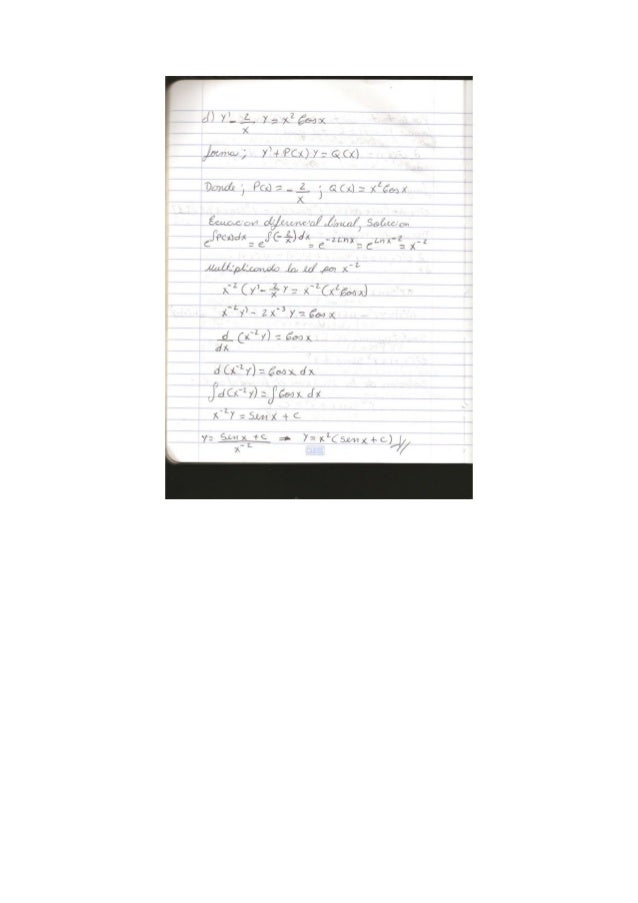 d) y' - 2/x y = x² Cosx
forma; y' + P(x) y = Q(x)
Donde; P(x) = - 2/x ; Q(x) = x² Cos x
Ecuacion diferencial lineal, Solucion
e^∫P(x)dx = e^∫(-2/x)dx = e^-2Lnx = e^Lnx^-2 = x^-2
Multiplicando la ed por x^-2
x^-2 (y' - 2/x y = x^-2 (x² Cosx)
x^-2 y' - 2x^-3 y = Cos x
d/dx (x^-2 y) = Cosx
d(x^-2 y) = Cosx dx
∫d(x^-2 y) = ∫Cosx dx
x^-2 y = Sen x + C
y = Senx + C / x^-2 ⇒ y = x² (Senx + C)